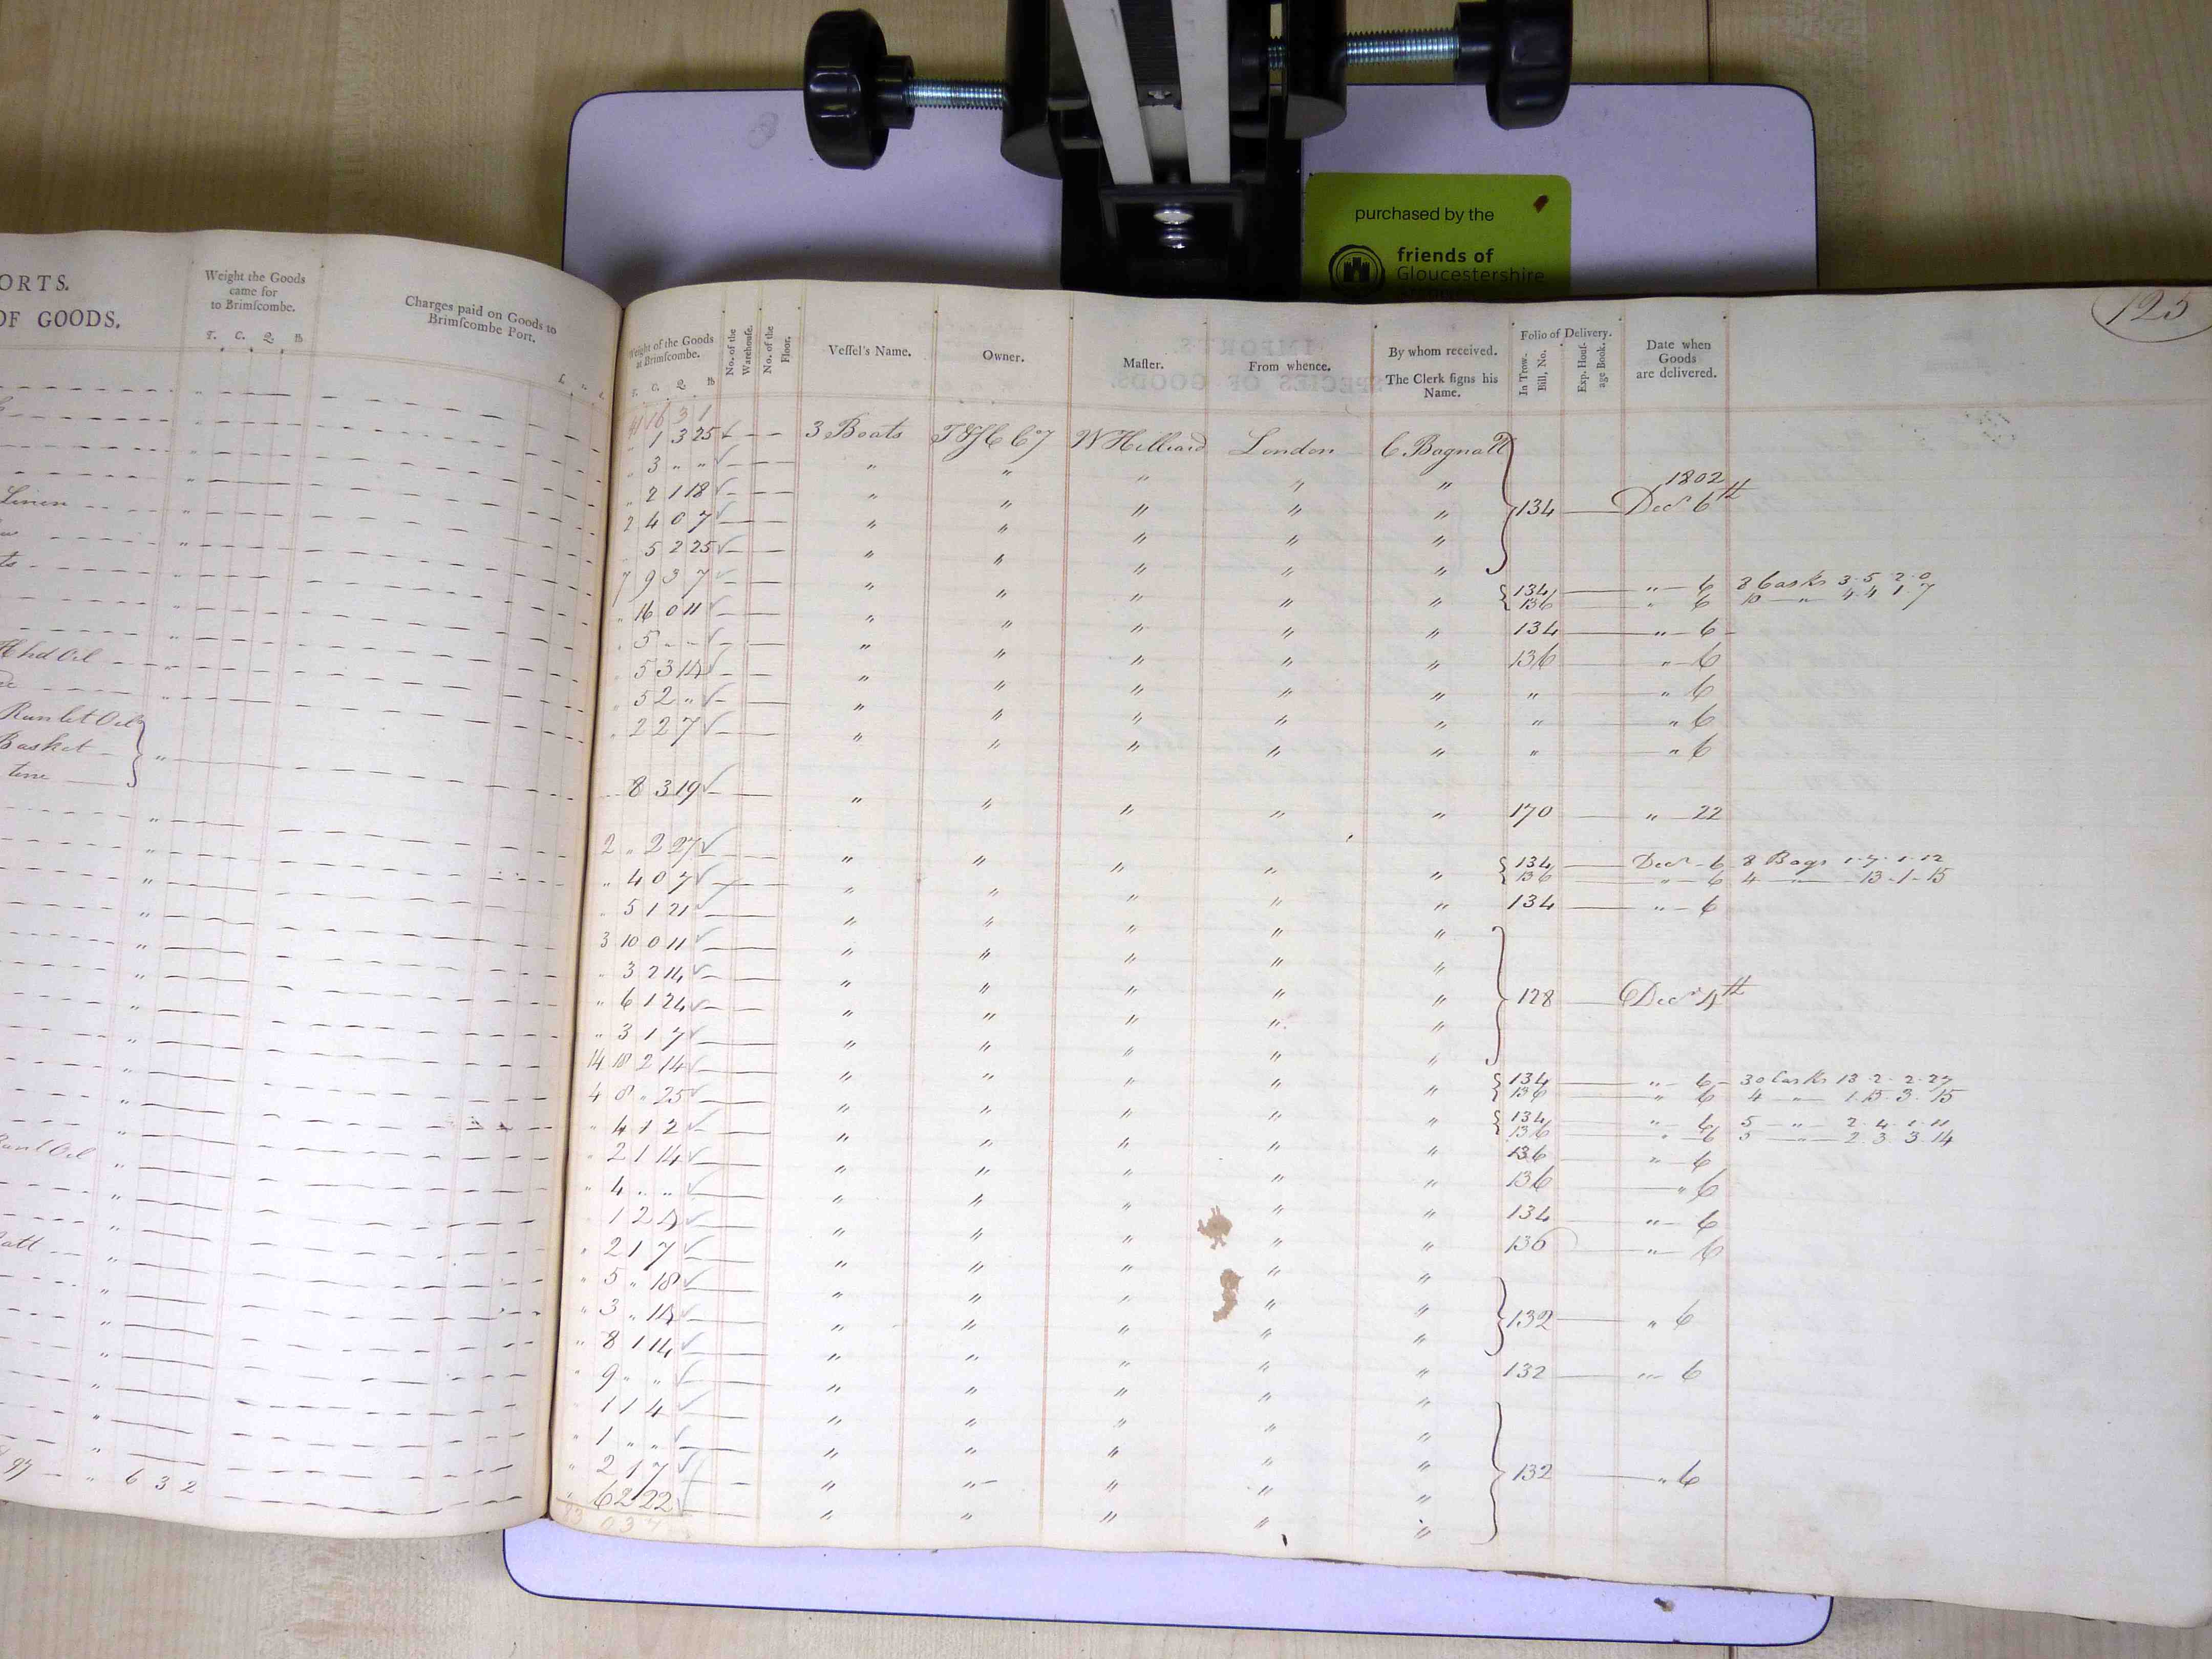 purchased by the
friends of
Gloucestershire
ORTS.
OF GOODS.
Weight the Goods
came for
to Brimſcombe.
T. C. Q. lb
Charges paid on Goods to
Brimſcombe Port.
Linen
Hhd Oil
Runlet Oil
Basket
tine
Runl Oil
" 6 3 2
125
Weight of the Goods
at Brimſcombe.
T. C. Q. lb
No. of the
Warehouſe.
No. of the
Floor.
Veſſel's Name.
Owner.
Maſter.
From whence.
By whom received.
The Clerk ſigns his
Name.
Folio of Delivery.
In Trow-
Bill, No.
Exp. Houſ-
age Book.
Date when
Goods
are delivered.
41 16 3 1
" 1 3 25 3 Boats T&H Coy W Hilliard London C. Bagnall
" 3 " " " " " " "
1802
" 2 1 18 " " " " " 134 Decr 6th
2 4 0 7 " " " " "
" 5 2 25 " " " " "
7 9 3 7 " " " " " 134 " 6 8 Casks 3.5.2.0
136 " 6 10 " 4.4.1.7
" 16 0 11 " " " " " 134 " 6
" 5 " " " " " " " 136 " 6
" 5 3 14 " " " " " " " 6
" 5 2 " " " " " " " " 6
" 2 2 7 " " " " " " " 6
" 8 3 19 " " " " " 170 " 22
2 " 2 27 " " " " " 134 Decr 6 8 Bags 1.7.1.12
136 " 6 4 " 13.1.15
" 4 0 7 " " " " " 134 " 6
" 5 1 21 " " " " "
3 10 0 11 " " " " "
" 3 2 14 " " " " " 128 Decr 4th
" 6 1 24 " " " " "
" 3 1 7 " " " " "
14 18 2 14 " " " " " 134 " 6 30 Casks 13.2.2.27
136 " 6 4 " 1.15.3.15
4 8 " 25 " " " " " 134 " 6 5 " 2.4.1.11
136 " 6 5 " 2.3.3.14
" 4 1 2 " " " " " 136 " 6
" 2 1 14 " " " " " 136 " 6
" 4 " " " " " " " 134 " 6
" 1 2 4 " " " " " 136 " 6
" 2 1 7 " " " " "
" 5 " 18 " " " " " 132 " 6
" 3 " 14 " " " " "
" 8 1 14 " " " " " 132 " 6
" 9 " " " " " " "
" 1 1 4 " " " " "
" 1 " " " " " " " 132 " 6
" 2 1 7 " " " " "
" 6 2 22 " " " " "
83 0 3 7